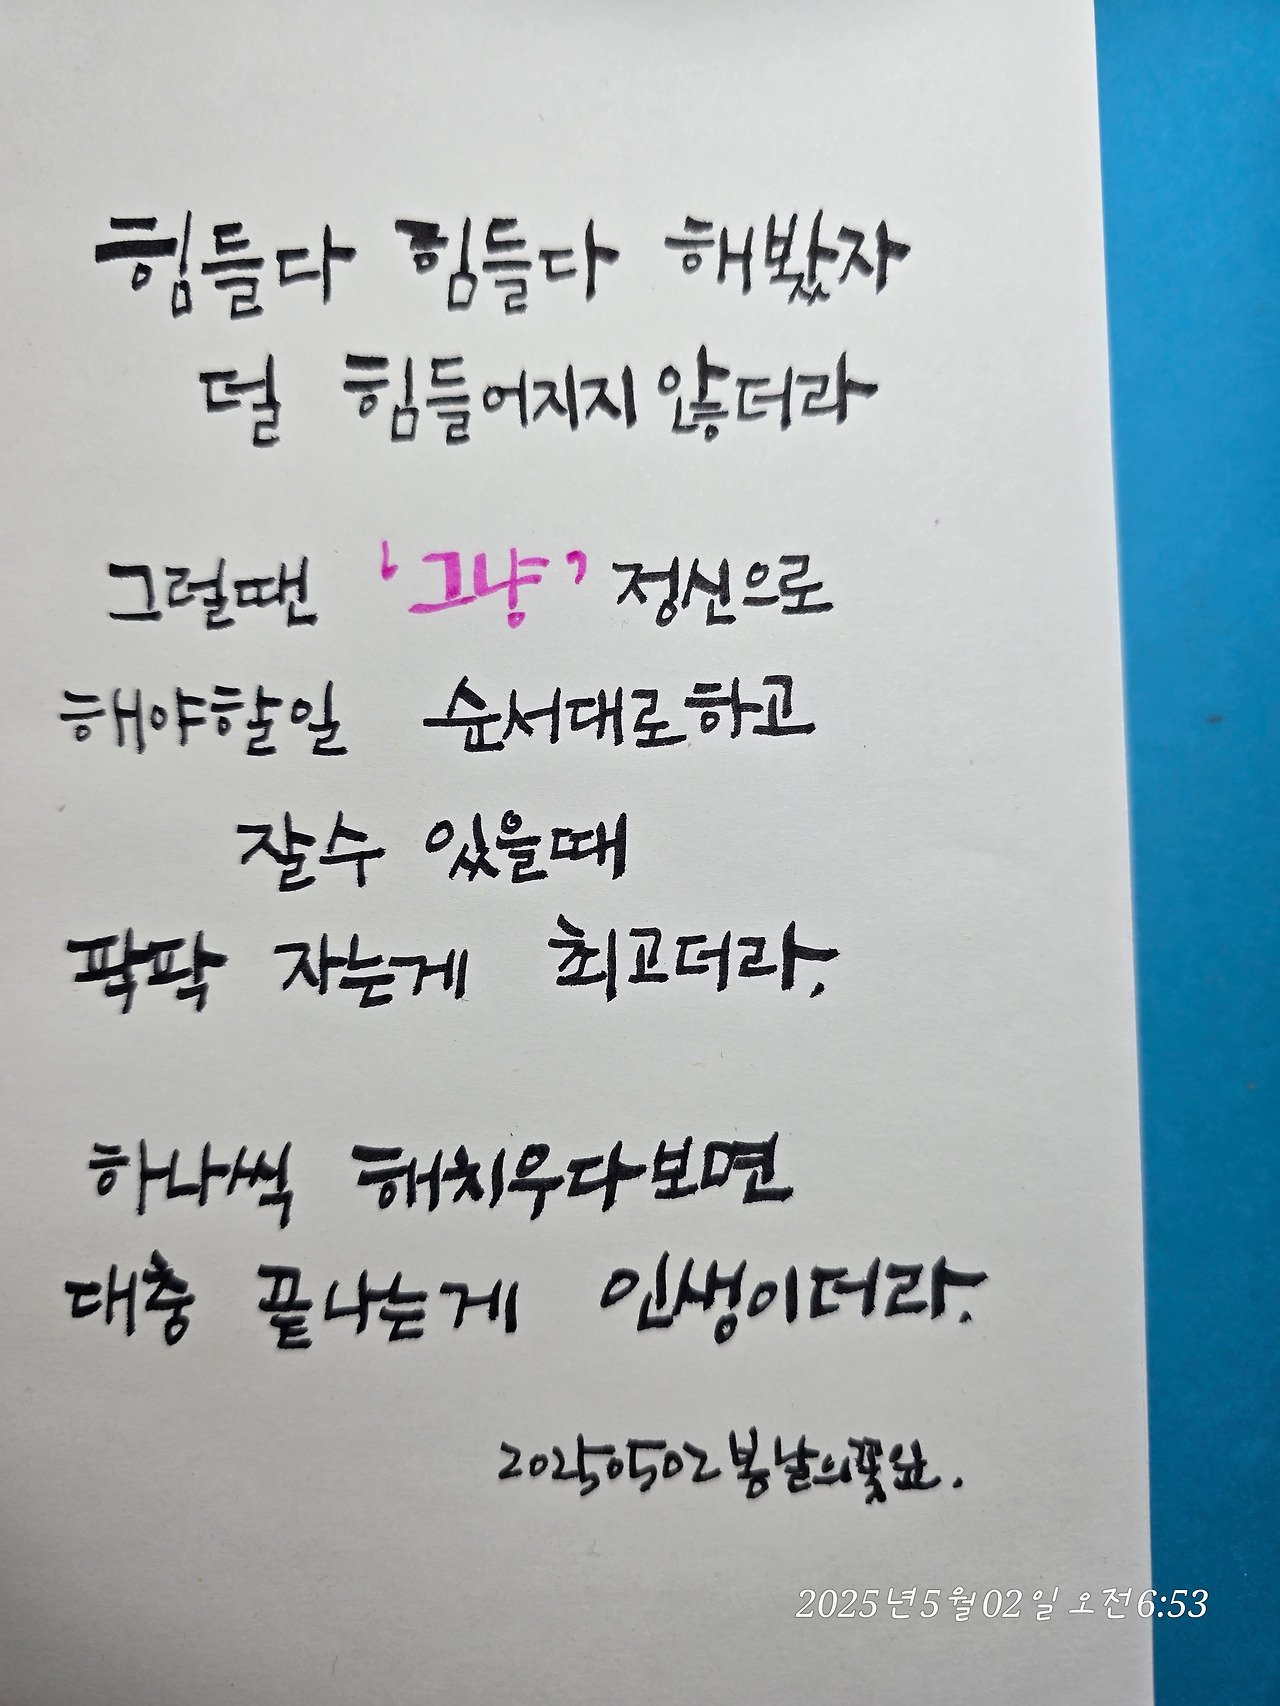 힘들다 힘들다 해봤자
덜 힘들어지지 않더라
그럴땐 '그냥' 정신으로
해야할일 순서대로하고
잘수 있을때
팍팍 자는게 최고더라.
하나씩 해치우다보면
대충 끝나는게 인생이더라.
20250502 봄날의꽃
2025년 5월 02일 오전 6:53